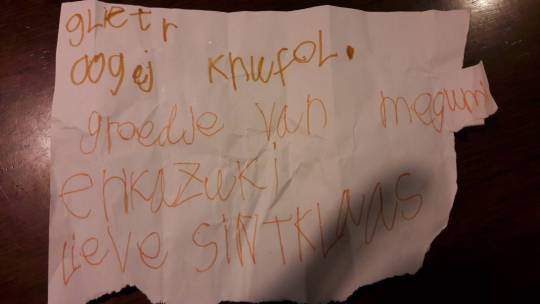 gLIetr
oogej knuffOL.
groedje van megumi
enkazuki
LIEVE SINTKLAAS